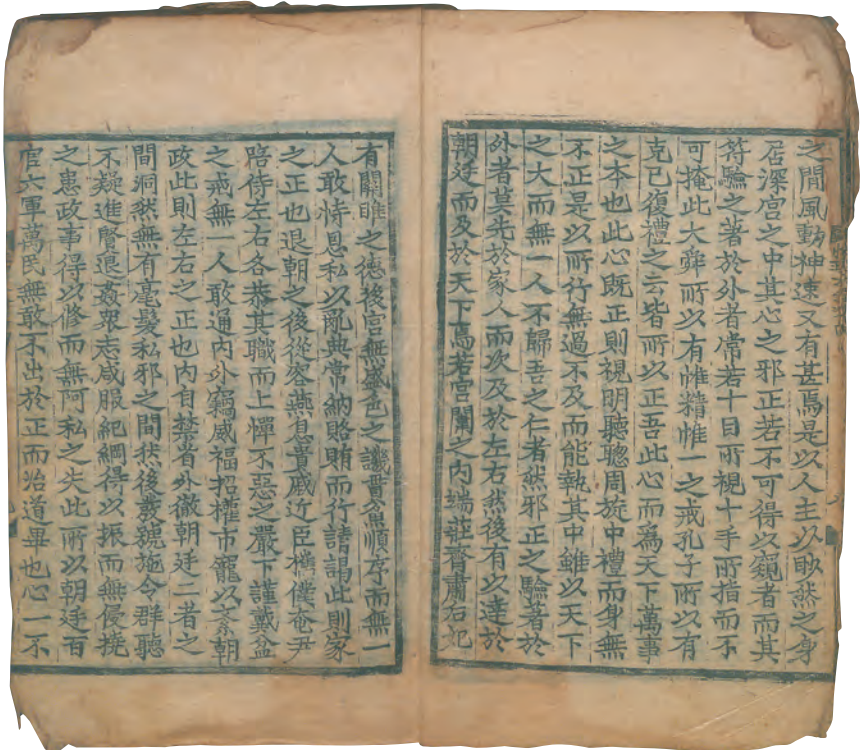 之間風動神速又有甚焉是以人主以眇然之身
居深宮之中其心之邪正若不可得以窺者而其
符驗之著於外者常若十目所視十手所指而不
可掩此大舜所以有惟精惟一之戒孔子所以有
克己復禮之云皆所以正吾此心而為天下萬事
之本也此心既正則視明聽聰周旋中禮而身無
不正是以所行無過不及而能執其中雖以天下
之大而無一人不歸吾之仁者然邪正之驗著於
外者莫先於家人而次及於左右然後有以達於
朝廷而及於天下焉若宮闈之內端莊齊肅后妃
有關雎之德後宮無盛色之譏貫魚順序而無一
人敢恃恩私以亂典常納賂賄而行請謁此則家
之正也退朝之後從容燕息貴戚近臣㩦僕奄尹
陪侍左右各恭其職而上憚不惡之嚴下謹戴盆
之戒無一人敢通內外竊威福招權市寵以紊朝
政此則左右之正也內自禁省外徹朝廷二者之
間洞然無有毫髮私邪之間然後發號施令群聽
不疑進賢退姦眾志咸服紀綱得以振而無侵撓
之患政事得以修而無阿私之失此所以朝廷百
官六軍萬民無敢不出於正而治道畢也心一不